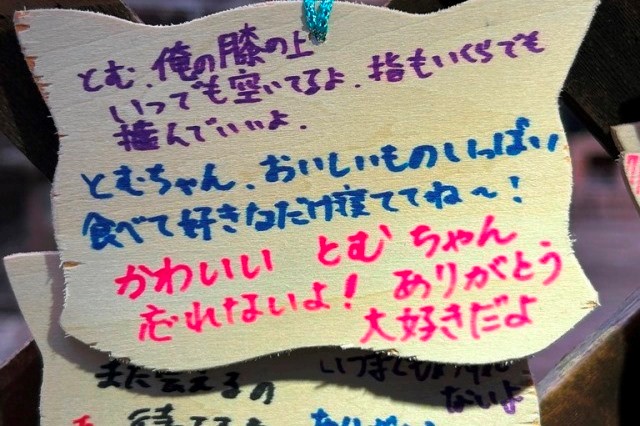 とむ、俺の膝の上
いつでも空いてるよ、指もいくらでも
揉んでいいよ、
とむちゃん、おいしいものいっぱい
食べて好きなだけ寝ててね〜!
かわいい とむ ちゃん
忘れないよ! ありがとう
大好きだよ
また会える の
ないよ